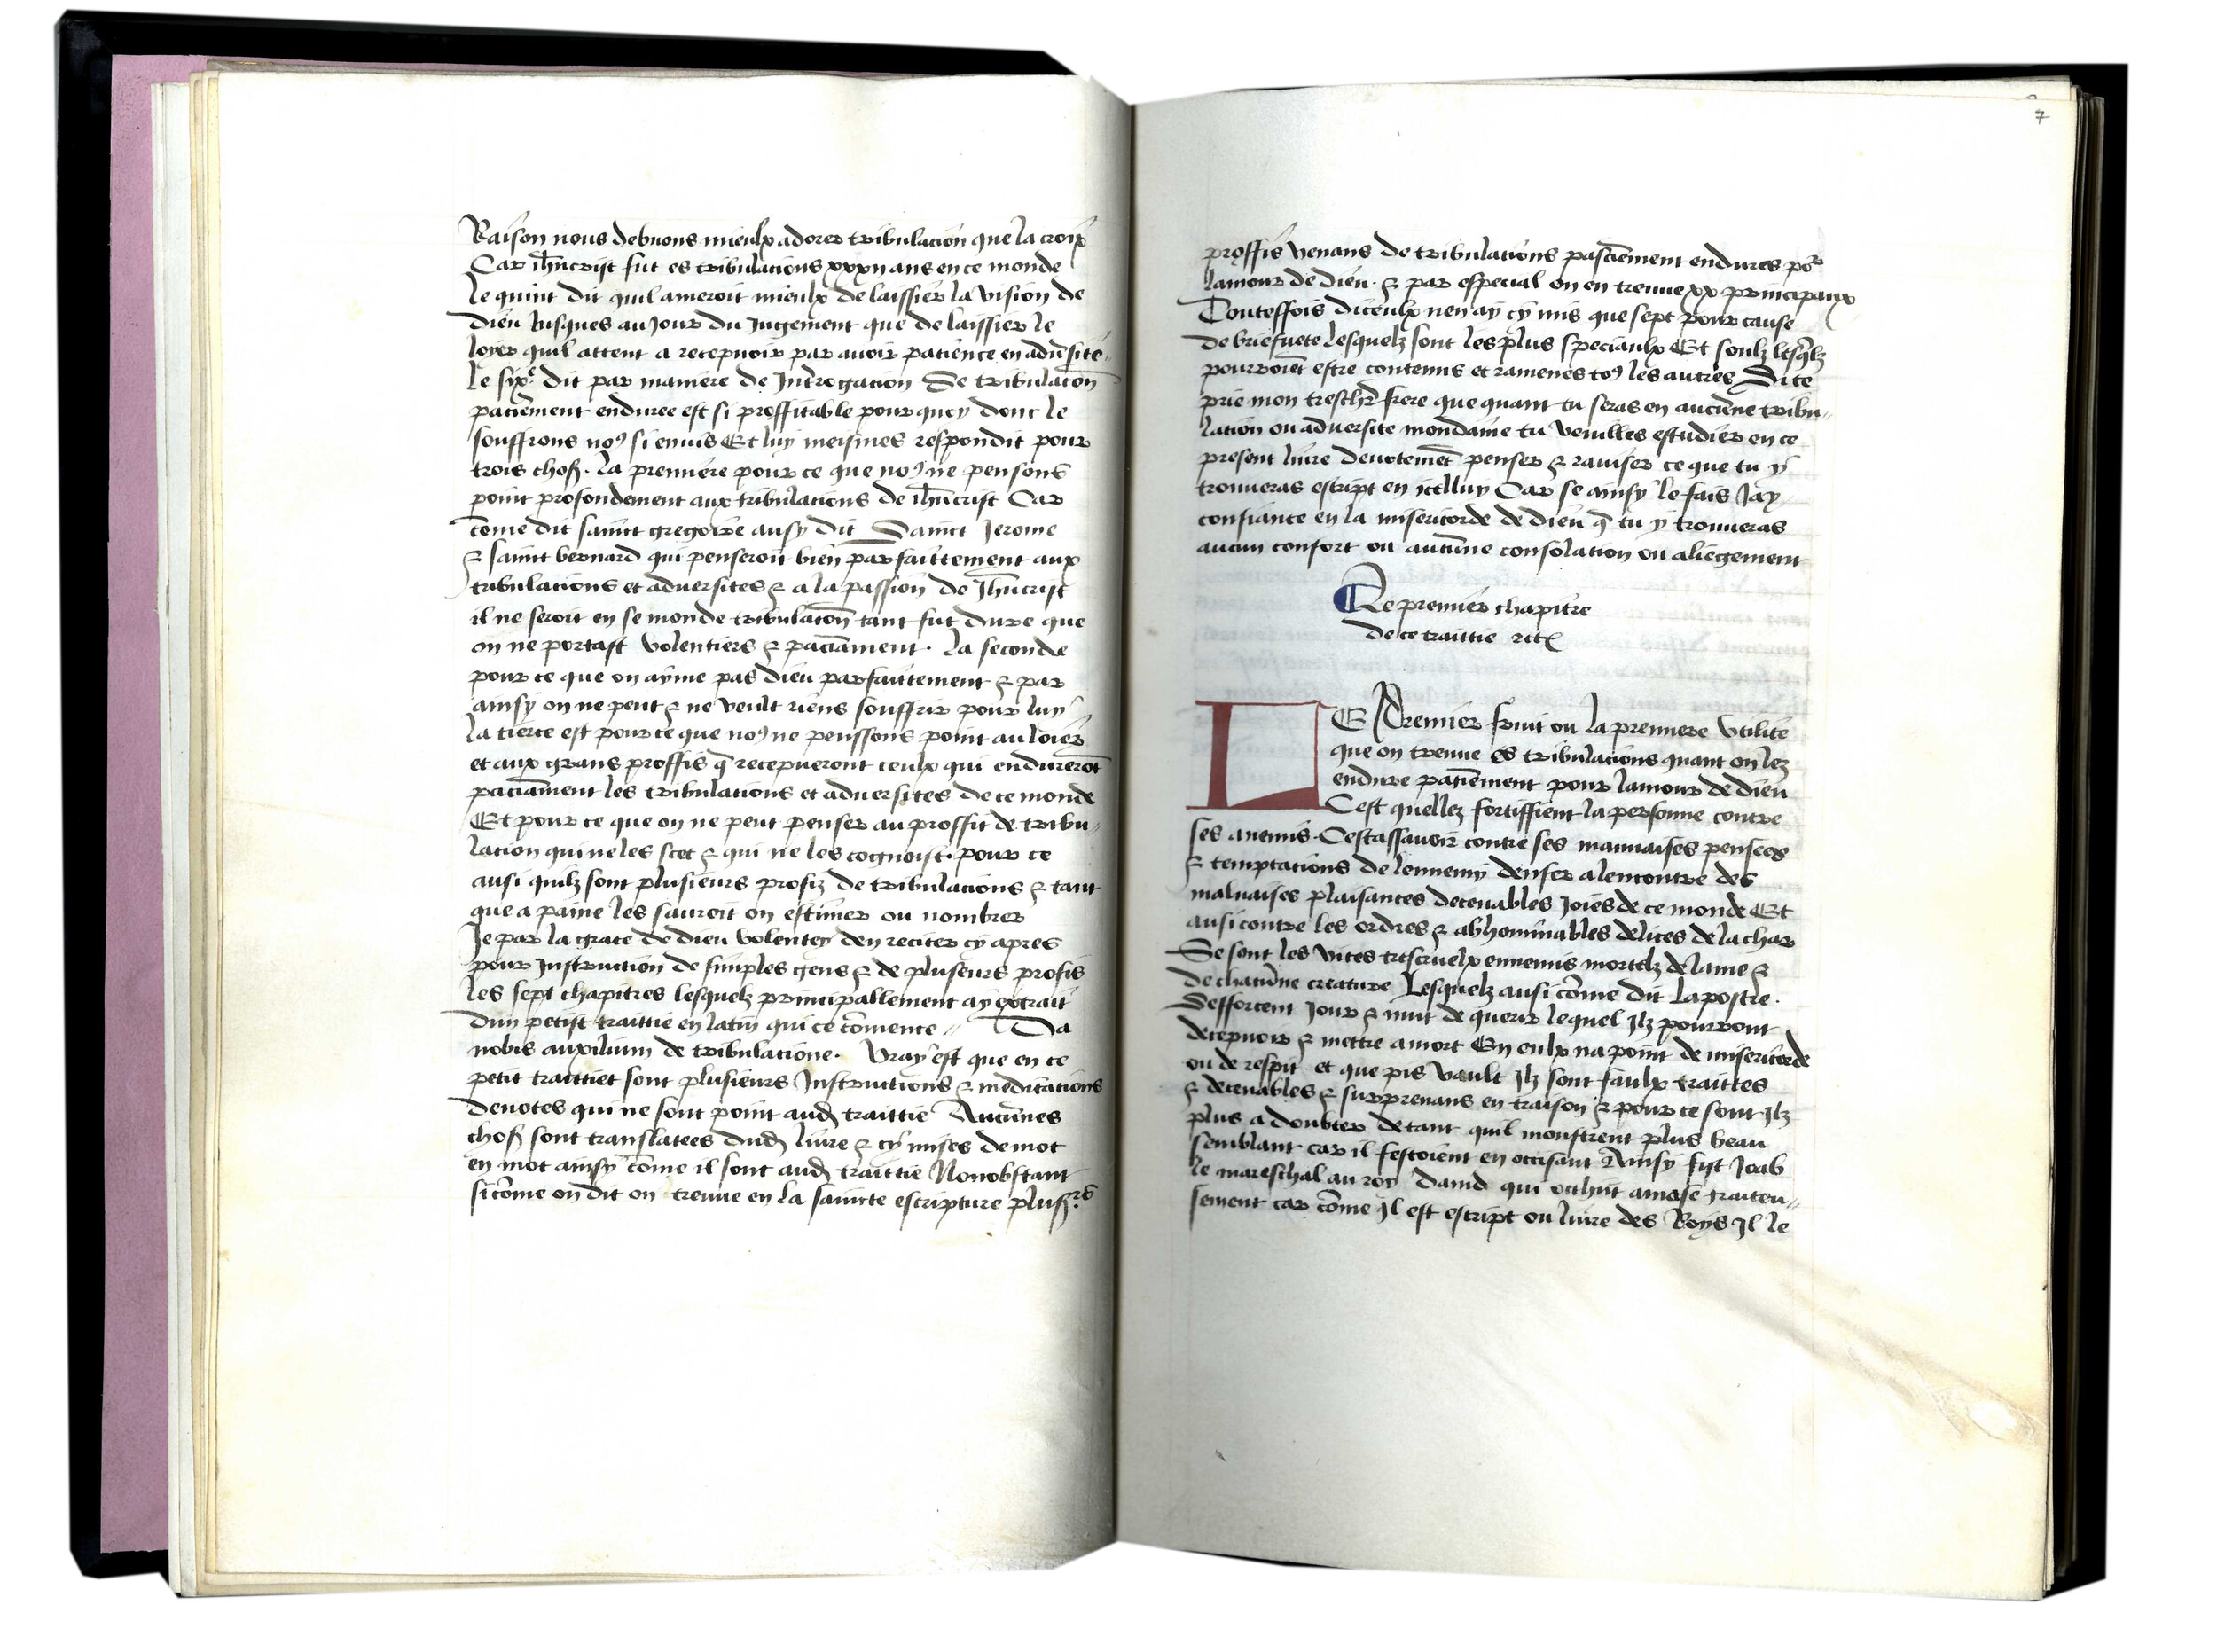 Raison nous debuons mieulx adorer tribulation que la croix
Car ih̅ucrist fut es tribulations xxxii ans en ce monde
le quint dit quil ameroit mieulx de laissier la vision de
dieu Jusques au Jour du Jugement que de laissier le
loyer quil attent a recepuoir par auoir patience en adu̅site
le sixe dit par maniere de Interogation Se tribulaco̅n
pacie̅ment enduree est si proffitable pour quoy dont le
souffrons noꝯ si enuis Et luy meismes respondit pour
trois choß. la premiere pour ce que noꝯ ne pensons
point profondement aux tribulations de ih̅ucrist Car
co̅me dit saint gregoire ausy dit Sainct Jerome
& saint bernard qui penseroit bien parfaittement aux
tribulations et aduersites & a la passion de Jh̅ucrist
il ne seroit en se monde tribulaco̅n tant fut dure que
on ne portast volentiers & pacia̅ment. la seconde
pour ce que on ayme pas dieu parfaittement & par
ainsy on ne peut & ne veult riens souffrir pour luy
la tierce est pour ce que noꝯ ne penssons point au loier
et aux grans proffis q̅ recepueront ceulx qui endurero̅t
pacia̅ment les tribulations et aduersites de ce monde
Et pour ce que on ne peut penser au proffit de tribu〃
lation qui ne les scet & qui ne les cognoist. pour ce
ausi quilz sont plusieurs profiz de tribulacions & tant
que a paine les sauroit on estimer ou nombrer
Je par la grace de dieu volentey den reciter cy apres
pour Instruction de simples gens & de pluseurs profis
les sept chapitres lesquelz principallement ay extrait
dun petist traittie en latin qui ce co̅mence〃 Da
nobis auxilium de tribulacione. Vray est que en ce
petit traittiet sont plusieurs Instructions & meditations
deuotes qui ne sont point aud traittie Aucu̅nes
choß sont translatees dud liure & cy mises de mot
en mot ainsy co̅me il sont aud traittie Nonobstant
sico̅me on dit on treuue en la saincte escripture plußrs
7
proffis venans de tribulations pascie̅ment endures por
lamour de dieu. & par especial on en treuue xx principaux
Touteffois diceulx nen ay cy mis que sept pour cause
de briefuete lesquelz sont les plus speciaulx Et soulz lesq̅lz
pourroie̅t estre contenus et ramenes toꝯ les autres Si te
prie mon tresch̅r frere que quant tu seras en aucu̅ne tribu〃
lation ou aduersite mondaine tu veuilles estudier en ce
present liure deuoteme̅t penser & rauiser ce que tu y
trouueras escript en icelluy Car se ainsy le fais Jay
confiance en la misericorde de dieu q̅ tu y trouueras
aucun confort ou aucu̅ne consolation ou aliegement
Le premier chapitre
de ce traittie
LE Premier fruit ou la premiere vtilite
que on treuue es tribulations quant on lez
endure pacie̅ment pour lamour de dieu
Cest quellez fortiffient la personne contre
ses anemis. Cestassauoir contre ses mauuaises pensees
& temptations de lennemy denfer a lencontre des
maluaises plaisances deceuables Joies de ce monde Et
ausi contre les ordres & abhominables delices de la char
Se sont les vices trescruelx ennemis mortelz de lame &
de chacu̅ne creature Lesquelz ausi co̅me dit lapostre.
Sefforcent Jour & nuit de querir lequel Jlz pourront
decepuoir & mettre a mort En eulx na point de misericorde
ou de respit et que pis vault Jlz sont faulx traittes
& deceuables & surprenans en traison & pour ce sont Jlz
plus a doubter de tant quil monstrent plus beau
semblant car il festoient en occisant Ainsy fist Joab
le mareschal au roy Dauid qui occhut amase traiteu〃
sement car co̅me Jl est escript ou liure des Roys Jl le